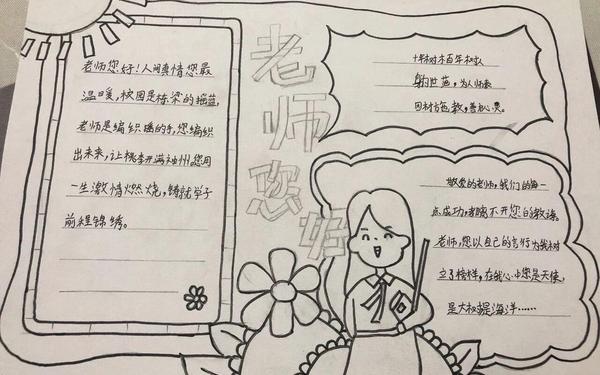 老师您好
老师您好！人间真情您最
温暖，校园是栋梁的摇篮，
老师是编织瑶的手，您编织
出未来，让桃李开满神州，您用
一生激情燃烧，铸就学子
前程锦绣。
十年树木百年树人
躬世范，为人师表
因材施教，善心灵。
敬爱的老师，我们的每一
点成功，都离不开您的教诲。
老师，您以自己的言行为我树
立了榜样，在我心中您是天使，
是大树是海洋……